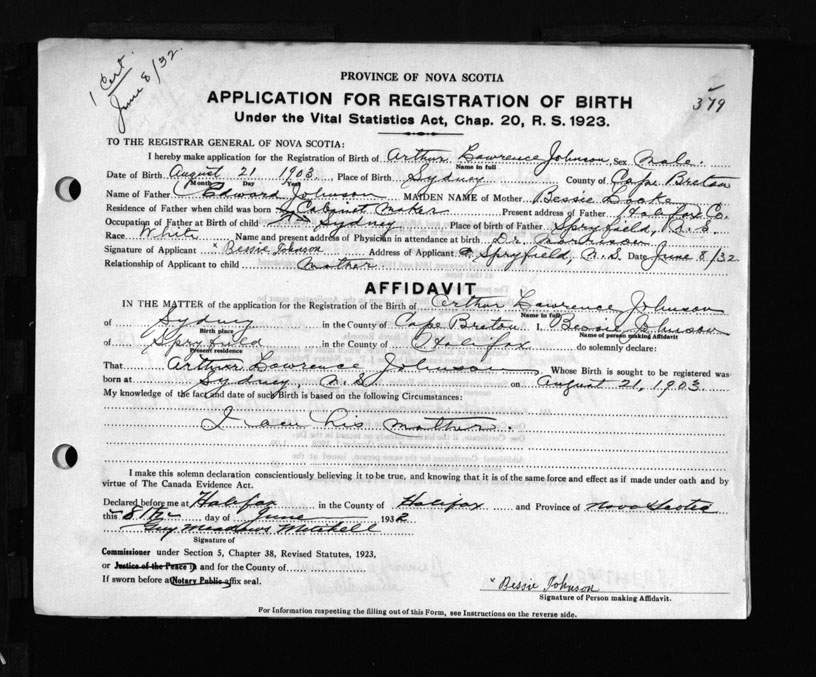 1 Cert.
June 8/32.
379
PROVINCE OF NOVA SCOTIA
APPLICATION FOR REGISTRATION OF BIRTH
Under the Vital Statistics Act, Chap. 20, R. S. 1923.
TO THE REGISTRAR GENERAL OF NOVA SCOTIA:
I hereby make application for the Registration of Birth of Arthur Lawrence Johnson, Sex Male.
Name in full
Date of Birth August 21 1903. Place of Birth Sydney County of Cape Breton
Month Day Year
Name of Father Edward Johnson MAIDEN NAME of Mother Bessie
Residence of Father when child was born Cabinet Maker Present address of Father Halifax Co.
Occupation of Father at Birth of child Sydney Place of birth of Father Spryfield, N. S.
Race White Name and present address of Physician in attendance at birth Dr.
Signature of Applicant x Bessie Johnson Address of Applicant Spryfield, N.S. Date June 8/32
Relationship of Applicant to child Mother
AFFIDAVIT
IN THE MATTER of the application for the Registration of the Birth of Arthur Lawrence Johnson
Name in full
of Sydney in the County of Cape Breton I, Bessie Johnson
Birth place Name of person making Affidavit
of Spryfield in the County of Halifax do solemnly declare:
Present residence
That Arthur Lawrence Johnson, Whose Birth is sought to be registered was
born at Sydney, N.S. on August 21, 1903
My knowledge of the fact and date of such Birth is based on the following Circumstances:
I am his mother.
I make this solemn declaration conscientiously believing it to be true, and knowing that it is of the same force and effect as if made under oath and by
virtue of The Canada Evidence Act.
Declared before me at Halifax in the County of Halifax and Province of Nova Scotia
this 8th day of June 1932
Guy Meadows Mitchell
Signature of
Commissioner under Section 5, Chapter 38, Revised Statutes, 1923,
or Justice of the Peace in and for the County of
If sworn before a Notary Public affix seal.
x Bessie Johnson
Signature of Person making Affidavit.
For Information respecting the filling out of this Form, see Instructions on the reverse side.